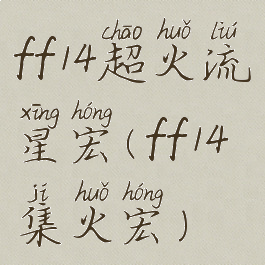 chāo huǒ liú
ff14超火流
xīng hóng
星宏(ff14
jí huǒ hóng
集火宏)